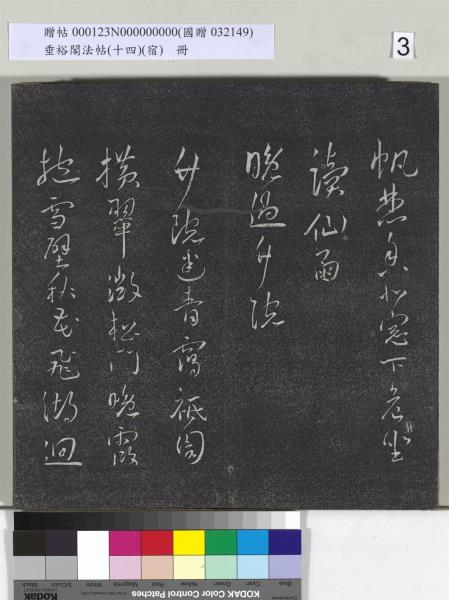 贈帖 000123N000000000(國贈 032149)
垂裕閣法帖(十四)(宿) 冊
3
帆焚香北窗下危坐
讀仙函
晚過竹院
竹院迷青靄祇園
横翠微松門晚霞
秋花飛湖迴
Blue
Cyan
Green
Yellow
Red
Magenta
White
3/Color
Black
Kodak
KODAK Color Control Patches